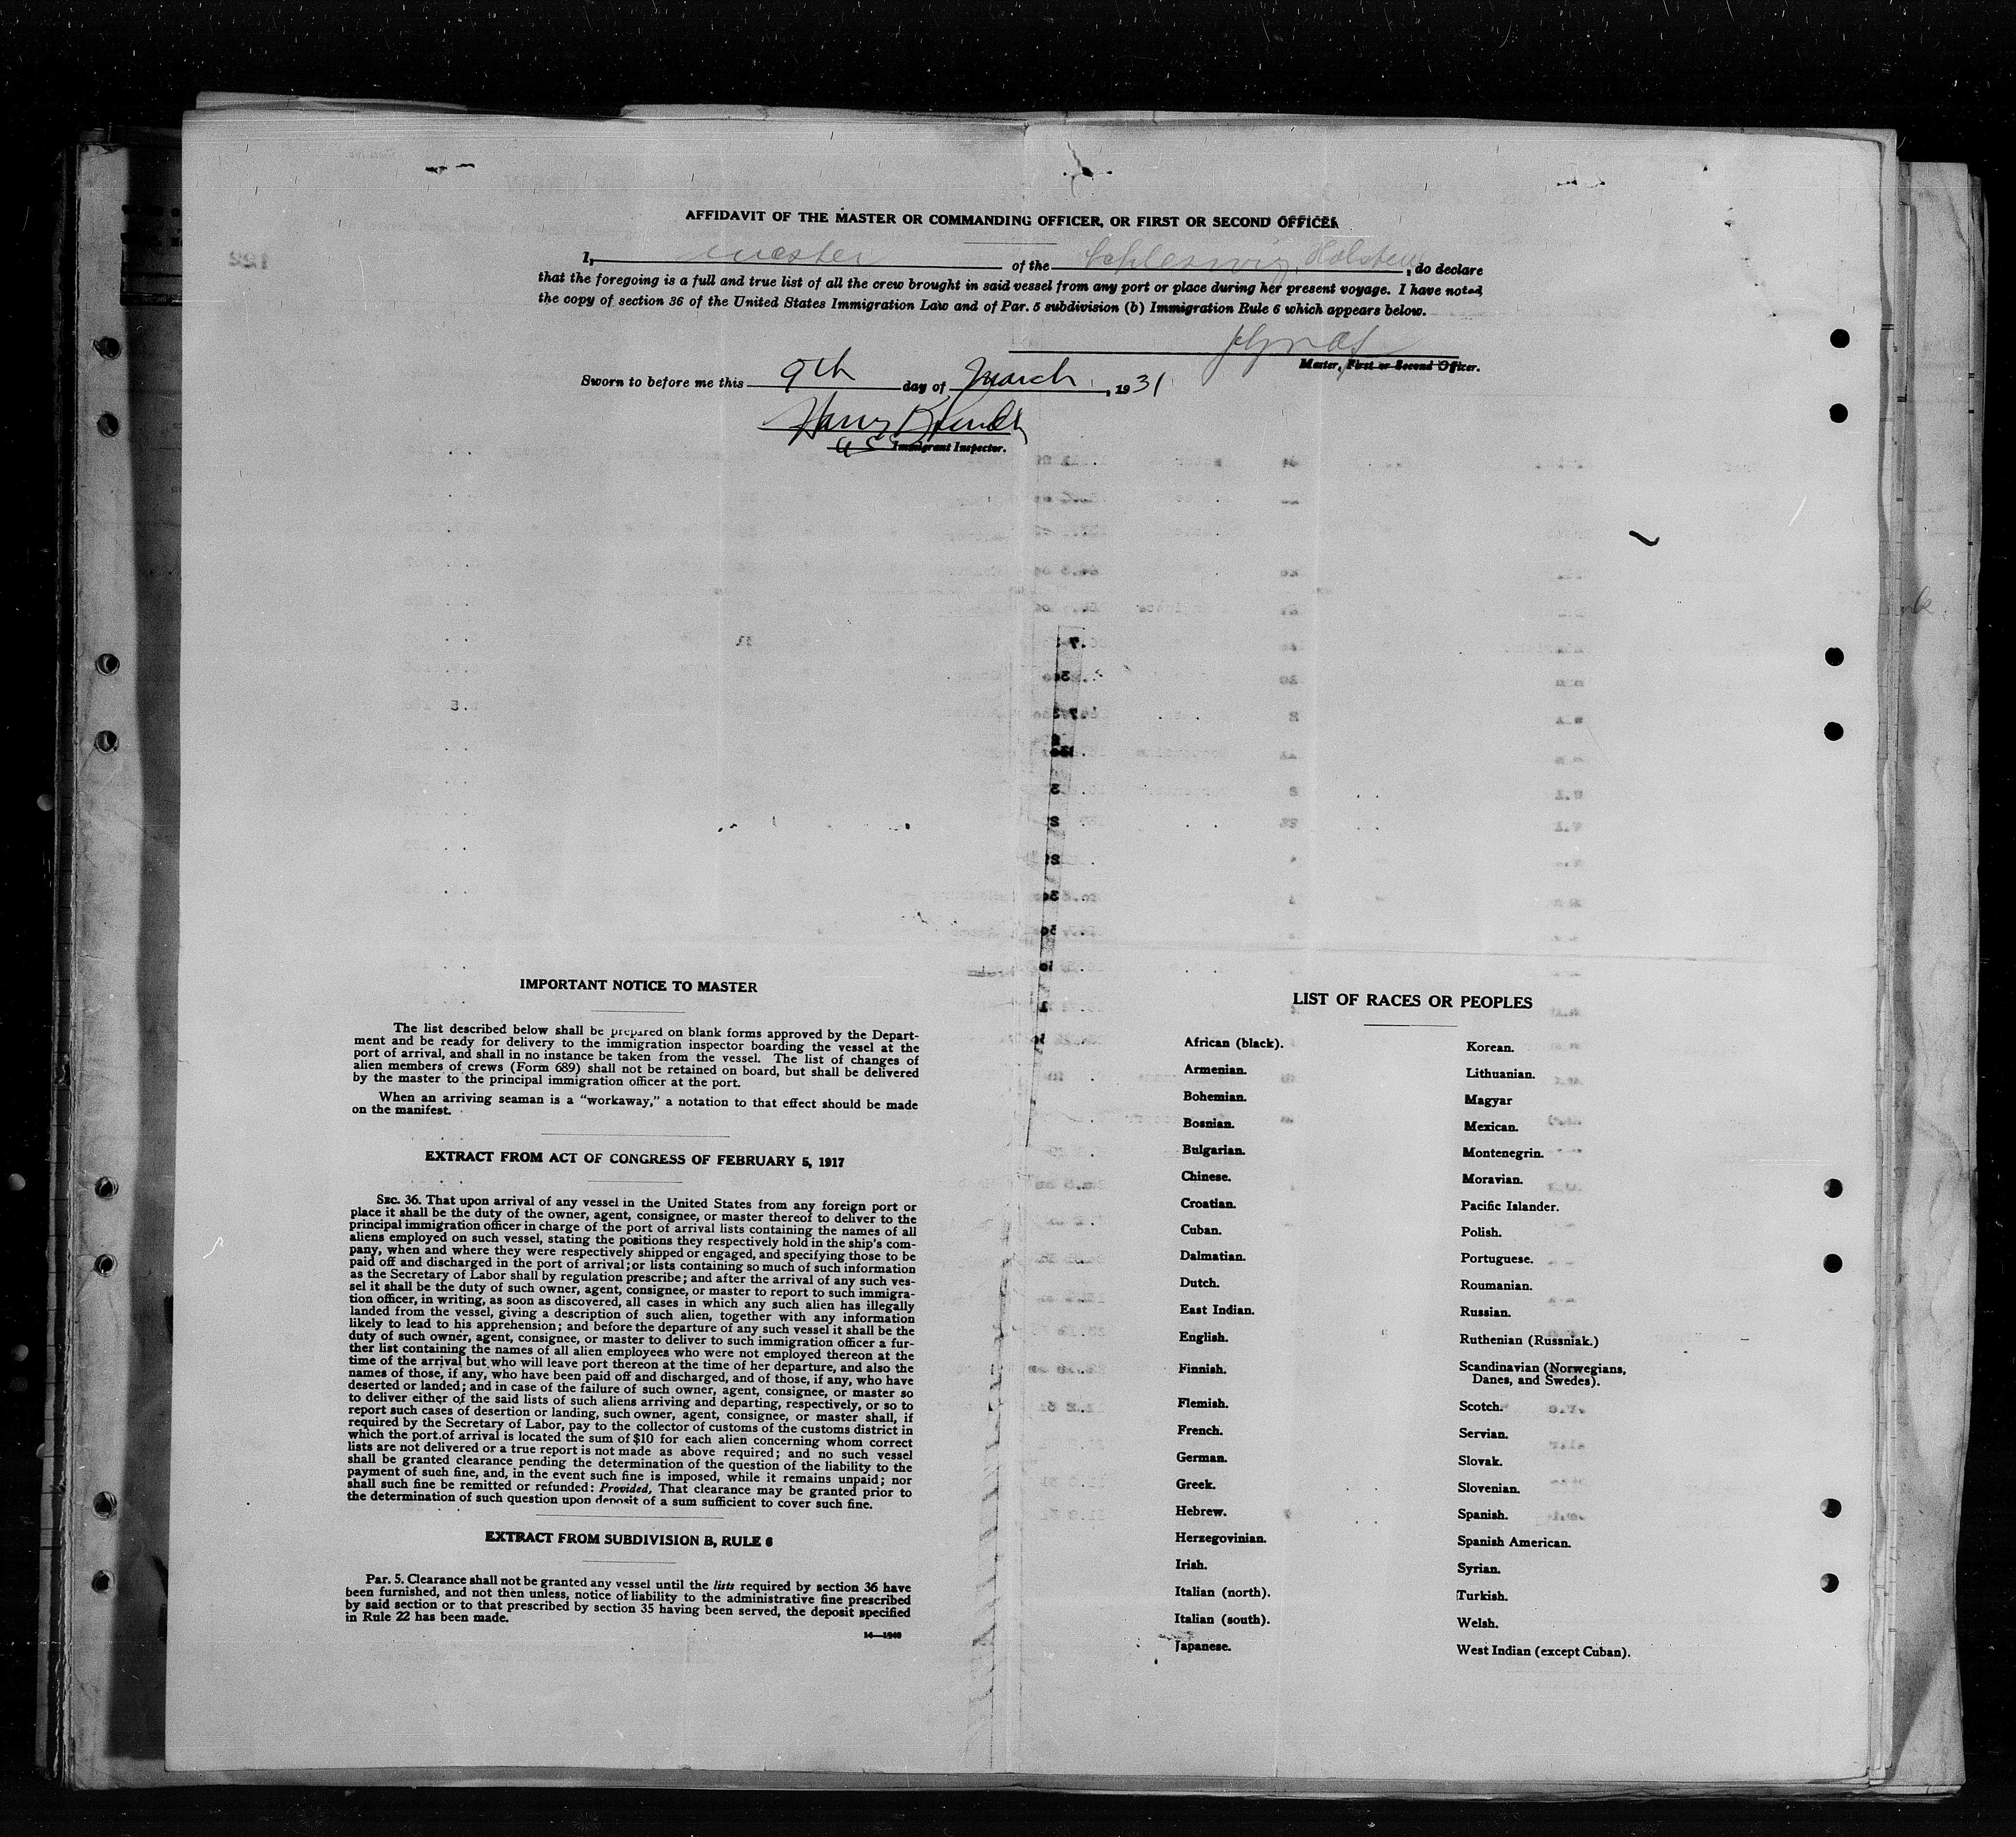 AFFIDAVIT OF THE MASTER OR COMMANDING OFFICER, OR FIRST OR SECOND OFFICER
I, master of the Schleswig Holstein, do declare
that the foregoing is a full and true list of all the crew brought in said vessel from any port or place during her present voyage. I have noted
the copy of section 36 of the United States Immigration Law and of Par. 5 subdivision (b) Immigration Rule 6 which appears below.
Master, First or Second Officer.
Sworn to before me this 9th day of March, 1931
Harry
Immigrant Inspector.
IMPORTANT NOTICE TO MASTER
The list described below shall be prepared on blank forms approved by the Depart-
ment and be ready for delivery to the immigration inspector boarding the vessel at the
port of arrival, and shall in no instance be taken from the vessel. The list of changes of
alien members of crews (Form 689) shall not be retained on board, but shall be delivered
by the master to the principal immigration officer at the port.
When an arriving seaman is a "workaway," a notation to that effect should be made
on the manifest.
EXTRACT FROM ACT OF CONGRESS OF FEBRUARY 5, 1917
SEC. 36. That upon arrival of any vessel in the United States from any foreign port or
place it shall be the duty of the owner, agent, consignee, or master thereof to deliver to the
principal immigration officer in charge of the port of arrival lists containing the names of all
aliens employed on such vessel, stating the positions they respectively hold in the ship's com-
pany, when and where they were respectively shipped or engaged, and specifying those to be
paid off and discharged in the port of arrival; or lists containing so much of such information
as the Secretary of Labor shall by regulation prescribe; and after the arrival of any such ves-
sel it shall be the duty of such owner, agent, consignee, or master to report to such immigra-
tion officer, in writing, as soon as discovered, all cases in which any such alien has illegally
landed from the vessel, giving a description of such alien, together with any information
likely to lead to his apprehension; and before the departure of any such vessel it shall be the
duty of such owner, agent, consignee, or master to deliver to such immigration officer a fur-
ther list containing the names of all alien employees who were not employed thereon at the
time of the arrival but who will leave port thereon at the time of her departure, and also the
names of those, if any, who have been paid off and discharged, and of those, if any, who have
deserted or landed; and in case of the failure of such owner, agent, consignee, or master so
to deliver either of the said lists of such aliens arriving and departing, respectively, or so to
report such cases of desertion or landing, such owner, agent, consignee, or master shall, if
required by the Secretary of Labor, pay to the collector of customs of the customs district in
which the port of arrival is located the sum of $10 for each alien concerning whom correct
lists are not delivered or a true report is not made as above required; and no such vessel
shall be granted clearance pending the determination of the question of the liability to the
payment of such fine, and, in the event such fine is imposed, while it remains unpaid; nor
shall such fine be remitted or refunded: Provided, That clearance may be granted prior to
the determination of such question upon deposit of a sum sufficient to cover such fine.
EXTRACT FROM SUBDIVISION B, RULE 6
Par. 5. Clearance shall not be granted any vessel until the lists required by section 36 have
been furnished, and not then unless, notice of liability to the administrative fine prescribed
by said section or to that prescribed by section 35 having been served, the deposit specified
in Rule 22 has been made.
14—1940
LIST OF RACES OR PEOPLES
African (black).
Armenian.
Bohemian.
Bosnian.
Bulgarian.
Chinese.
Croatian.
Cuban.
Dalmatian.
Dutch.
East Indian.
English.
Finnish.
Flemish.
French.
German.
Greek.
Hebrew.
Herzegovinian.
Irish.
Italian (north).
Italian (south).
Japanese.
Korean.
Lithuanian.
Magyar
Mexican.
Montenegrin.
Moravian.
Pacific Islander.
Polish.
Portuguese.
Roumanian.
Russian.
Ruthenian (Russniak.)
Scandinavian (Norwegians,
Danes, and Swedes).
Scotch.
Servian.
Slovak.
Slovenian.
Spanish.
Spanish American.
Syrian.
Turkish.
Welsh.
West Indian (except Cuban).